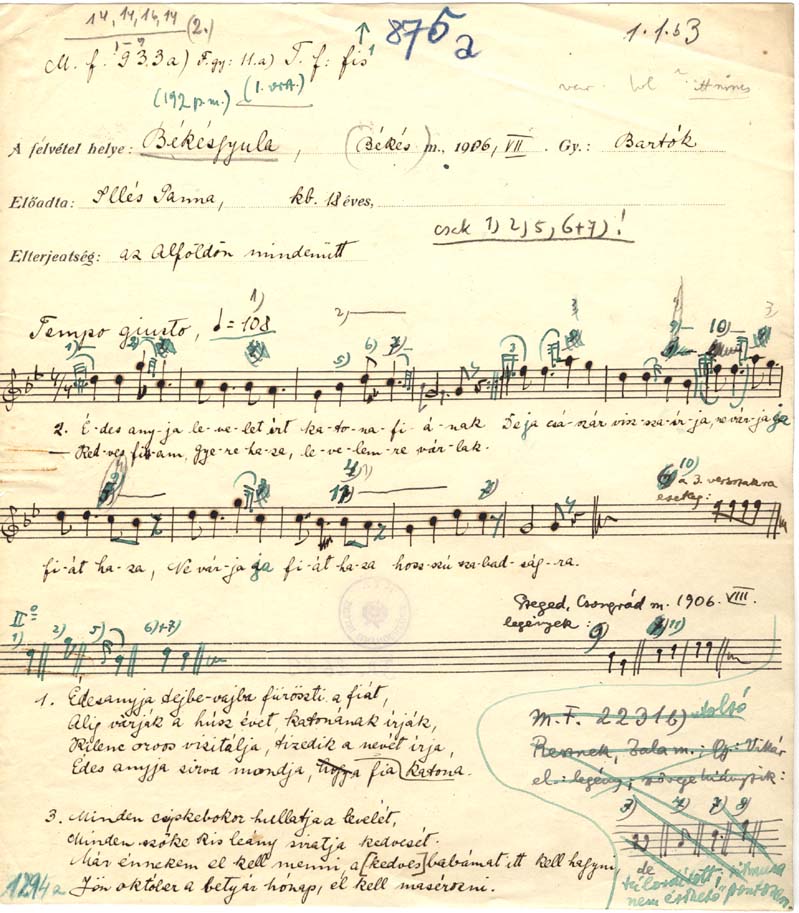 14, 14, 16, 14 (2.)
875a
1.1.63
M. f. 933a) F. gy: 11.a) T. f: fis¹
(192 p.m.) (I. vrt.)
var.
A felvétel helye: Békésgyula, (Békés) m., 1906, VII. Gy.: Bartók
Előadta: Illés Panna, kb. 18 éves,
csek 1) 2, 5, 6+7)!
Elterjeatség: az Alföldön mindenütt
Tempo giusto, ♩=108
2. É-des any-ja le-ve-let írt ka-to-na-fi-á-nak De ja csá-szár visz-sza-ír-ja, ne vár-ja ga
— Ked-ves fi-am, gye-re ha-za, le-ve-lem-re vár-lak.
10) a 3. versszakra esetleg:
fi-át ha-za, Ne vár-ja ga fi-át ha-za hosz-szú sza-bad-ság-ra.
Szeged, Csongrád m. 1906. VIII.
legények:
II⁰
1) 2) 5) 6)+7)
9) 11)
1. Édesanyja tejbe-vajba füröszti a fiát,
Alig várják a húsz évet, katonának írják,
Kilenc orvos visitálja, tizedik a nevét írja,
Édes anyja sírva mondja, hogy a fia katona.
M.F. 2231b) utolsó
Reznek, Zala m.; Gy: Vikár
el.: legény;
3) 7) 7) 8)
3. Minden csipkebokor hullatja a levelét,
Minden szőke kis leány siratja kedvesét.
Már énnekem el kell menni, a [kedves] babámat itt kell hagyni,
Jön október a betyár hónap, el kell masérozni.
1294a
de